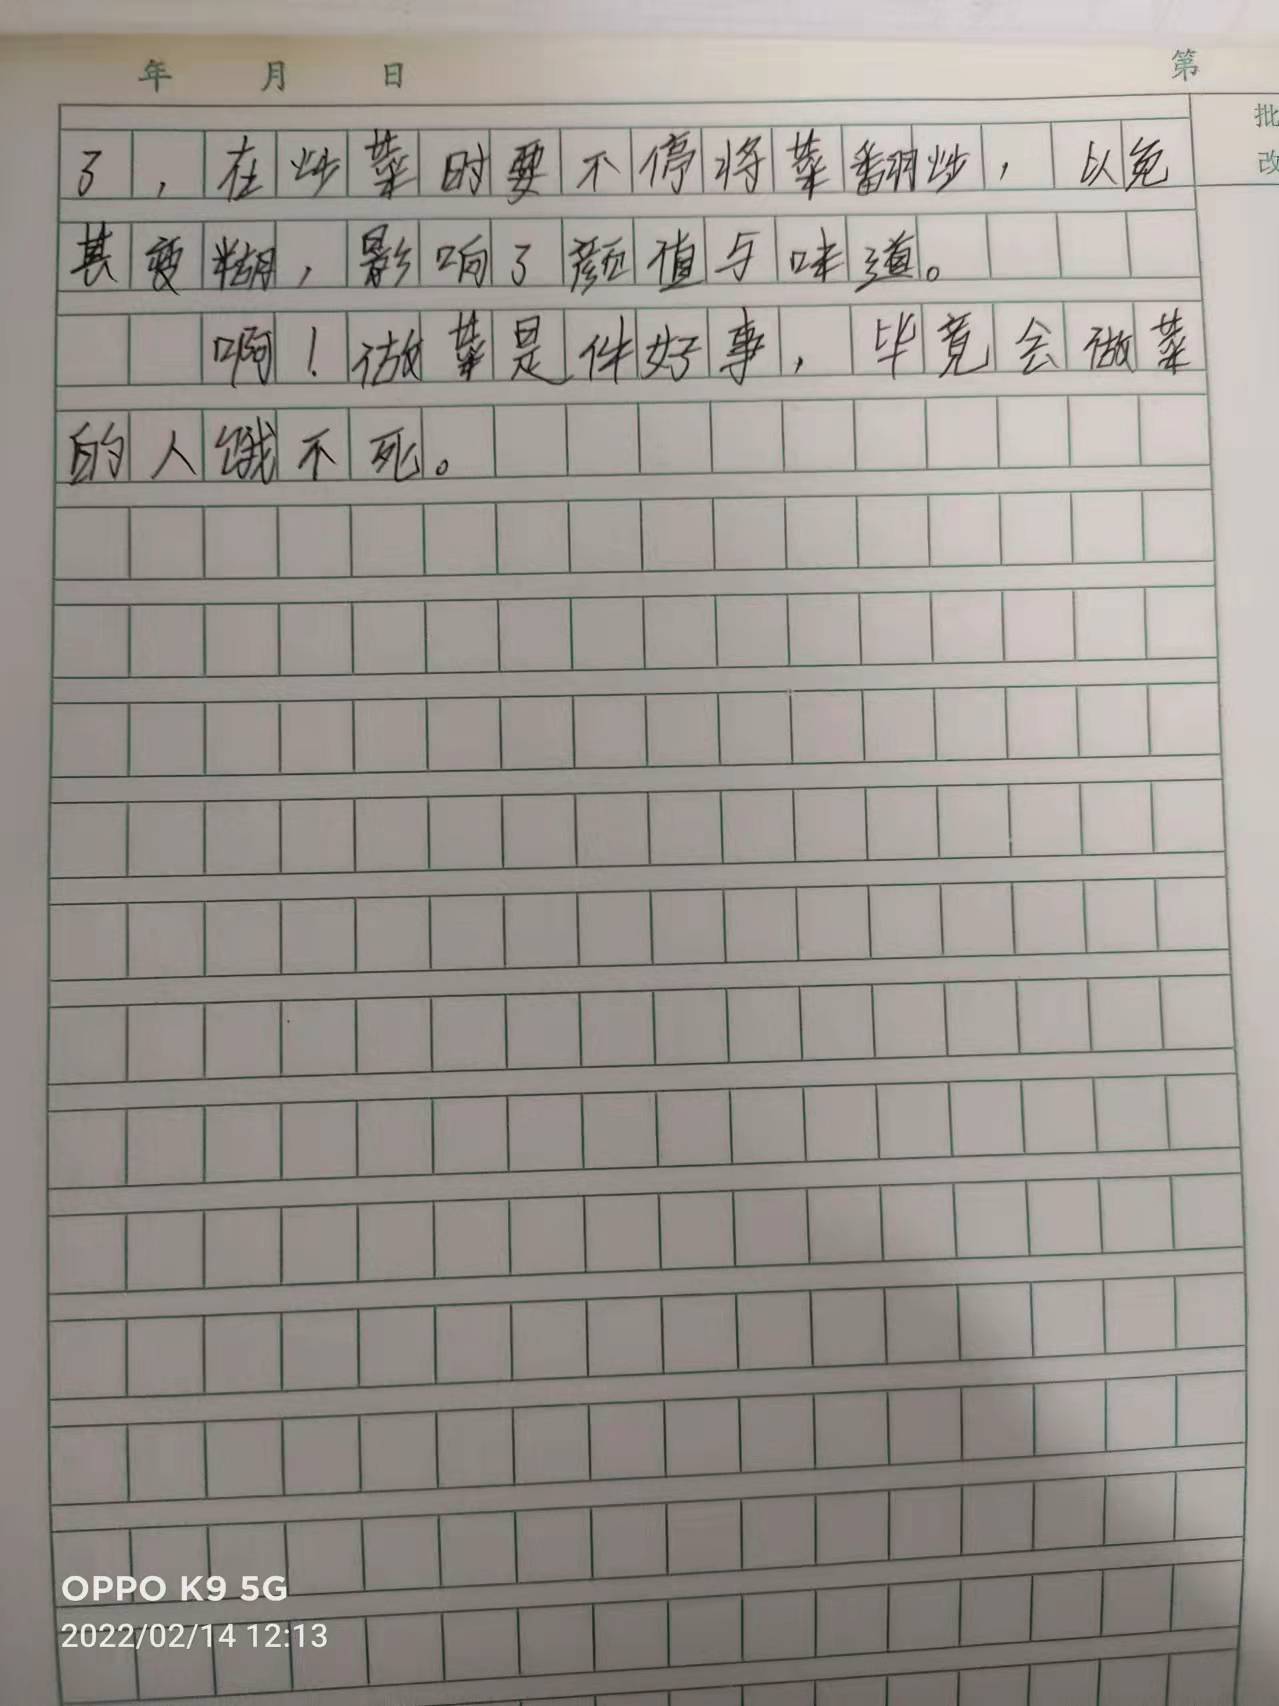 年 月 日 第
批
改
了，在炒菜时要不停将菜翻炒，以免
其变糊，影响了颜值与味道。
啊！做菜是件好事，毕竟会做菜
的人饿不死。
OPPO K9 5G
2022/02/14 12:13